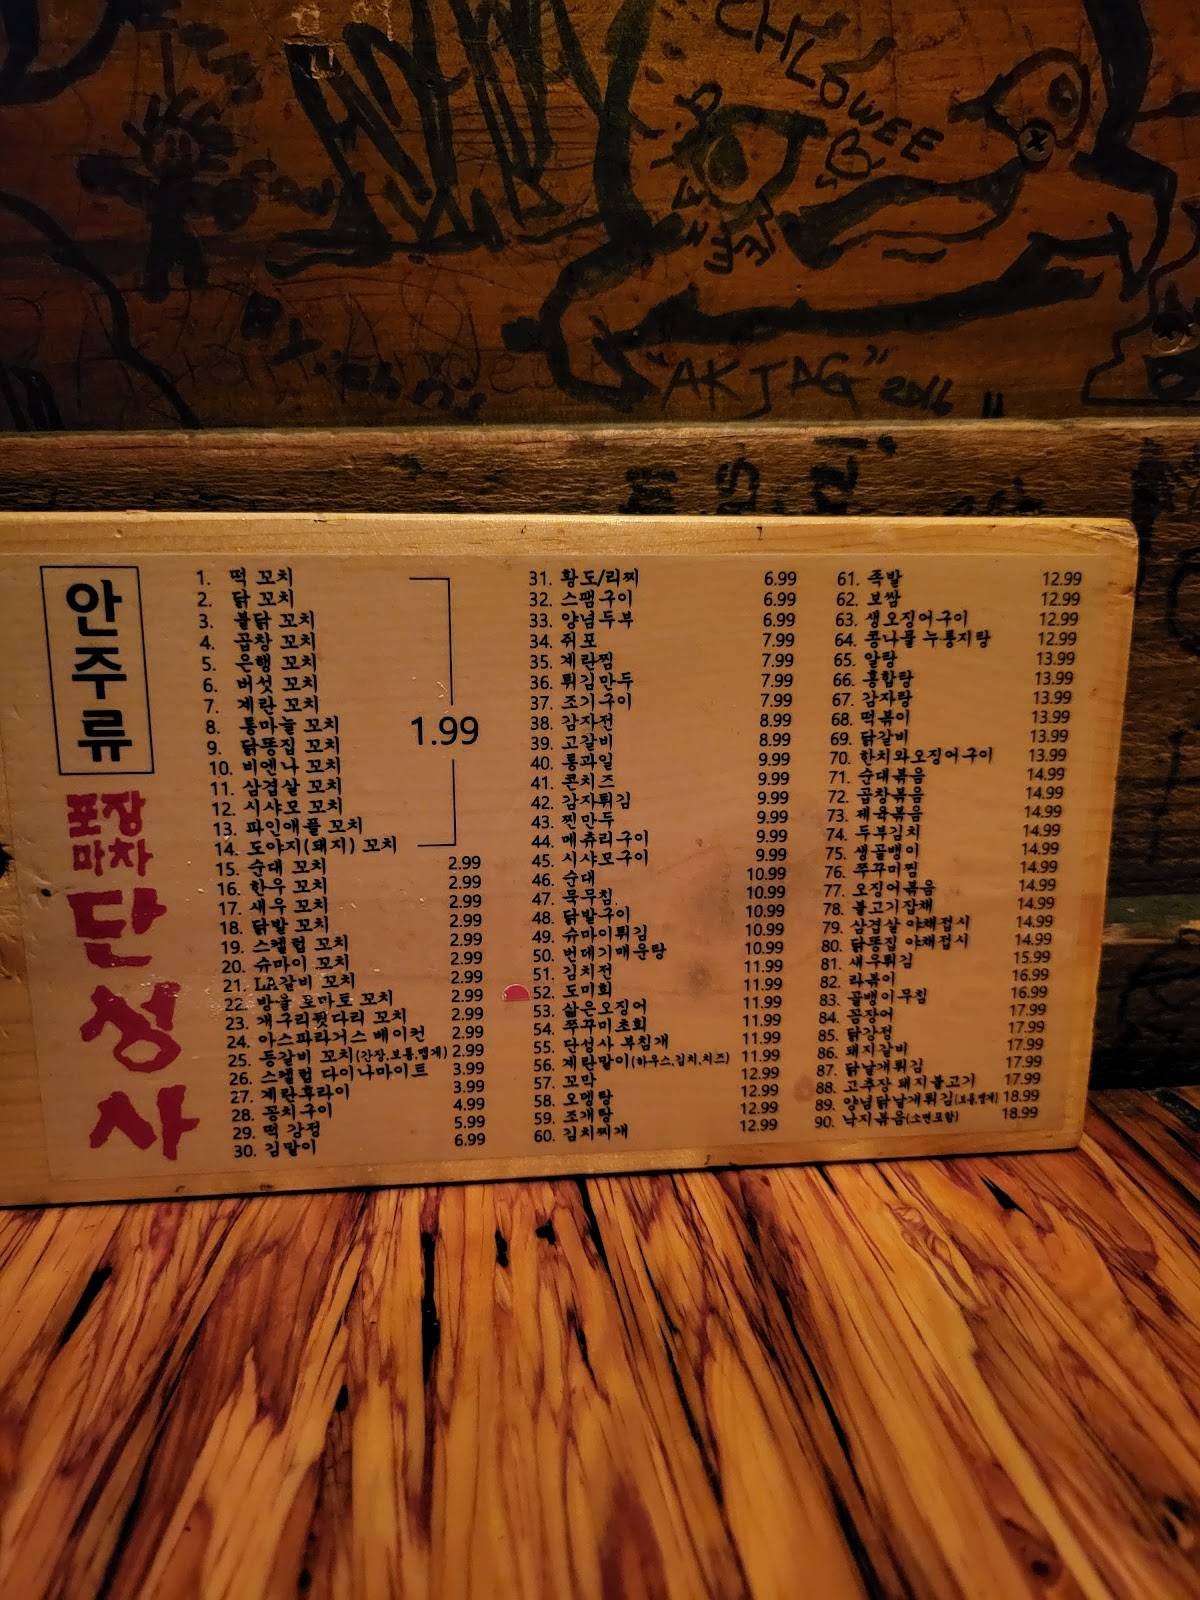 CHLOWEE
"AKJAG" 2016
안주류
포장
마차
단성사
1. 떡 꼬치
2. 닭 꼬치
3. 불닭 꼬치
4. 곱창 꼬치
5. 은행 꼬치
6. 버섯 꼬치
7. 계란 꼬치
8. 통마늘 꼬치
9. 닭똥집 꼬치
10. 비엔나 꼬치
11. 삼겹살 꼬치
12. 시샤모 꼬치
13. 파인애플 꼬치
14. 도야지(돼지) 꼬치
1.99
15. 순대 꼬치 2.99
16. 한우 꼬치 2.99
17. 새우 꼬치 2.99
18. 닭발 꼬치 2.99
19. 스켈럽 꼬치 2.99
20. 슈마이 꼬치 2.99
21. LA갈비 꼬치 2.99
22. 방울 토마토 꼬치 2.99
23. 개구리뒷다리 꼬치 2.99
24. 아스파라거스 베이컨 2.99
25. 등갈비 꼬치(간장,보통,맵게) 2.99
26. 스켈럽 다이나마이트 3.99
27. 계란후라이 3.99
28. 꽁치구이 4.99
29. 떡 강정 5.99
30. 김말이 6.99
31. 황도/리찌 6.99
32. 스팸구이 6.99
33. 양념두부 6.99
34. 쥐포 7.99
35. 계란찜 7.99
36. 튀김만두 7.99
37. 조기구이 7.99
38. 감자전 8.99
39. 고갈비 8.99
40. 통과일 9.99
41. 콘치즈 9.99
42. 감자튀김 9.99
43. 찐만두 9.99
44. 메츄리구이 9.99
45. 시샤모구이 9.99
46. 순대 10.99
47. 묵무침 10.99
48. 닭발구이 10.99
49. 슈마이튀김 10.99
50. 번데기매운탕 10.99
51. 김치전 11.99
52. 도미회 11.99
53. 삶은오징어 11.99
54. 쭈꾸미초회 11.99
55. 단성사 부침개 11.99
56. 계란말이(하우스,김치,치즈) 11.99
57. 꼬막 12.99
58. 오뎅탕 12.99
59. 조개탕 12.99
60. 김치찌개 12.99
61. 족발 12.99
62. 보쌈 12.99
63. 생오징어구이 12.99
64. 콩나물 누룽지탕 12.99
65. 알탕 13.99
66. 홍합탕 13.99
67. 감자탕 13.99
68. 떡볶이 13.99
69. 닭갈비 13.99
70. 한치와오징어구이 13.99
71. 순대볶음 14.99
72. 곱창볶음 14.99
73. 제육볶음 14.99
74. 두부김치 14.99
75. 생골뱅이 14.99
76. 쭈꾸미찜 14.99
77. 오징어볶음 14.99
78. 불고기잡채 14.99
79. 삼겹살 야채접시 14.99
80. 닭똥집 야채접시 14.99
81. 새우튀김 15.99
82. 라볶이 16.99
83. 골뱅이무침 16.99
84. 꼼장어 17.99
85. 닭강정 17.99
86. 돼지갈비 17.99
87. 닭날개튀김 17.99
88. 고추장 돼지불고기 17.99
89. 양념닭날개튀김(보통,맵게) 18.99
90. 낙지볶음(소면포함) 18.99